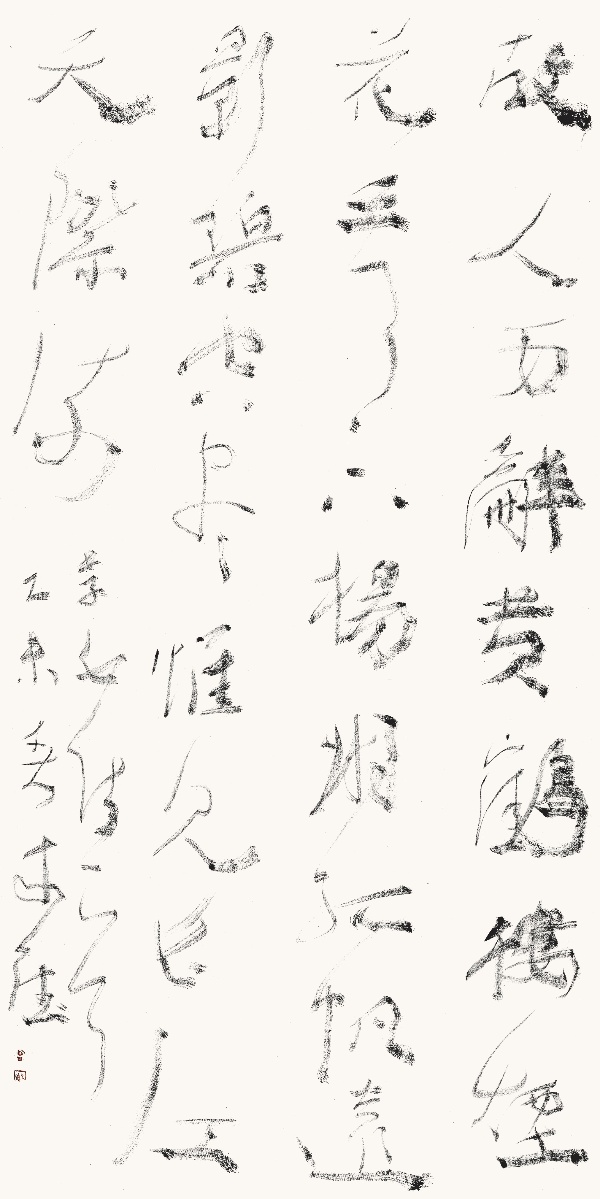 故人西辭黃鶴樓煙
花三月下揚州孤帆遠
影碧空盡惟見長江
天際流
李白詩一首
乙未